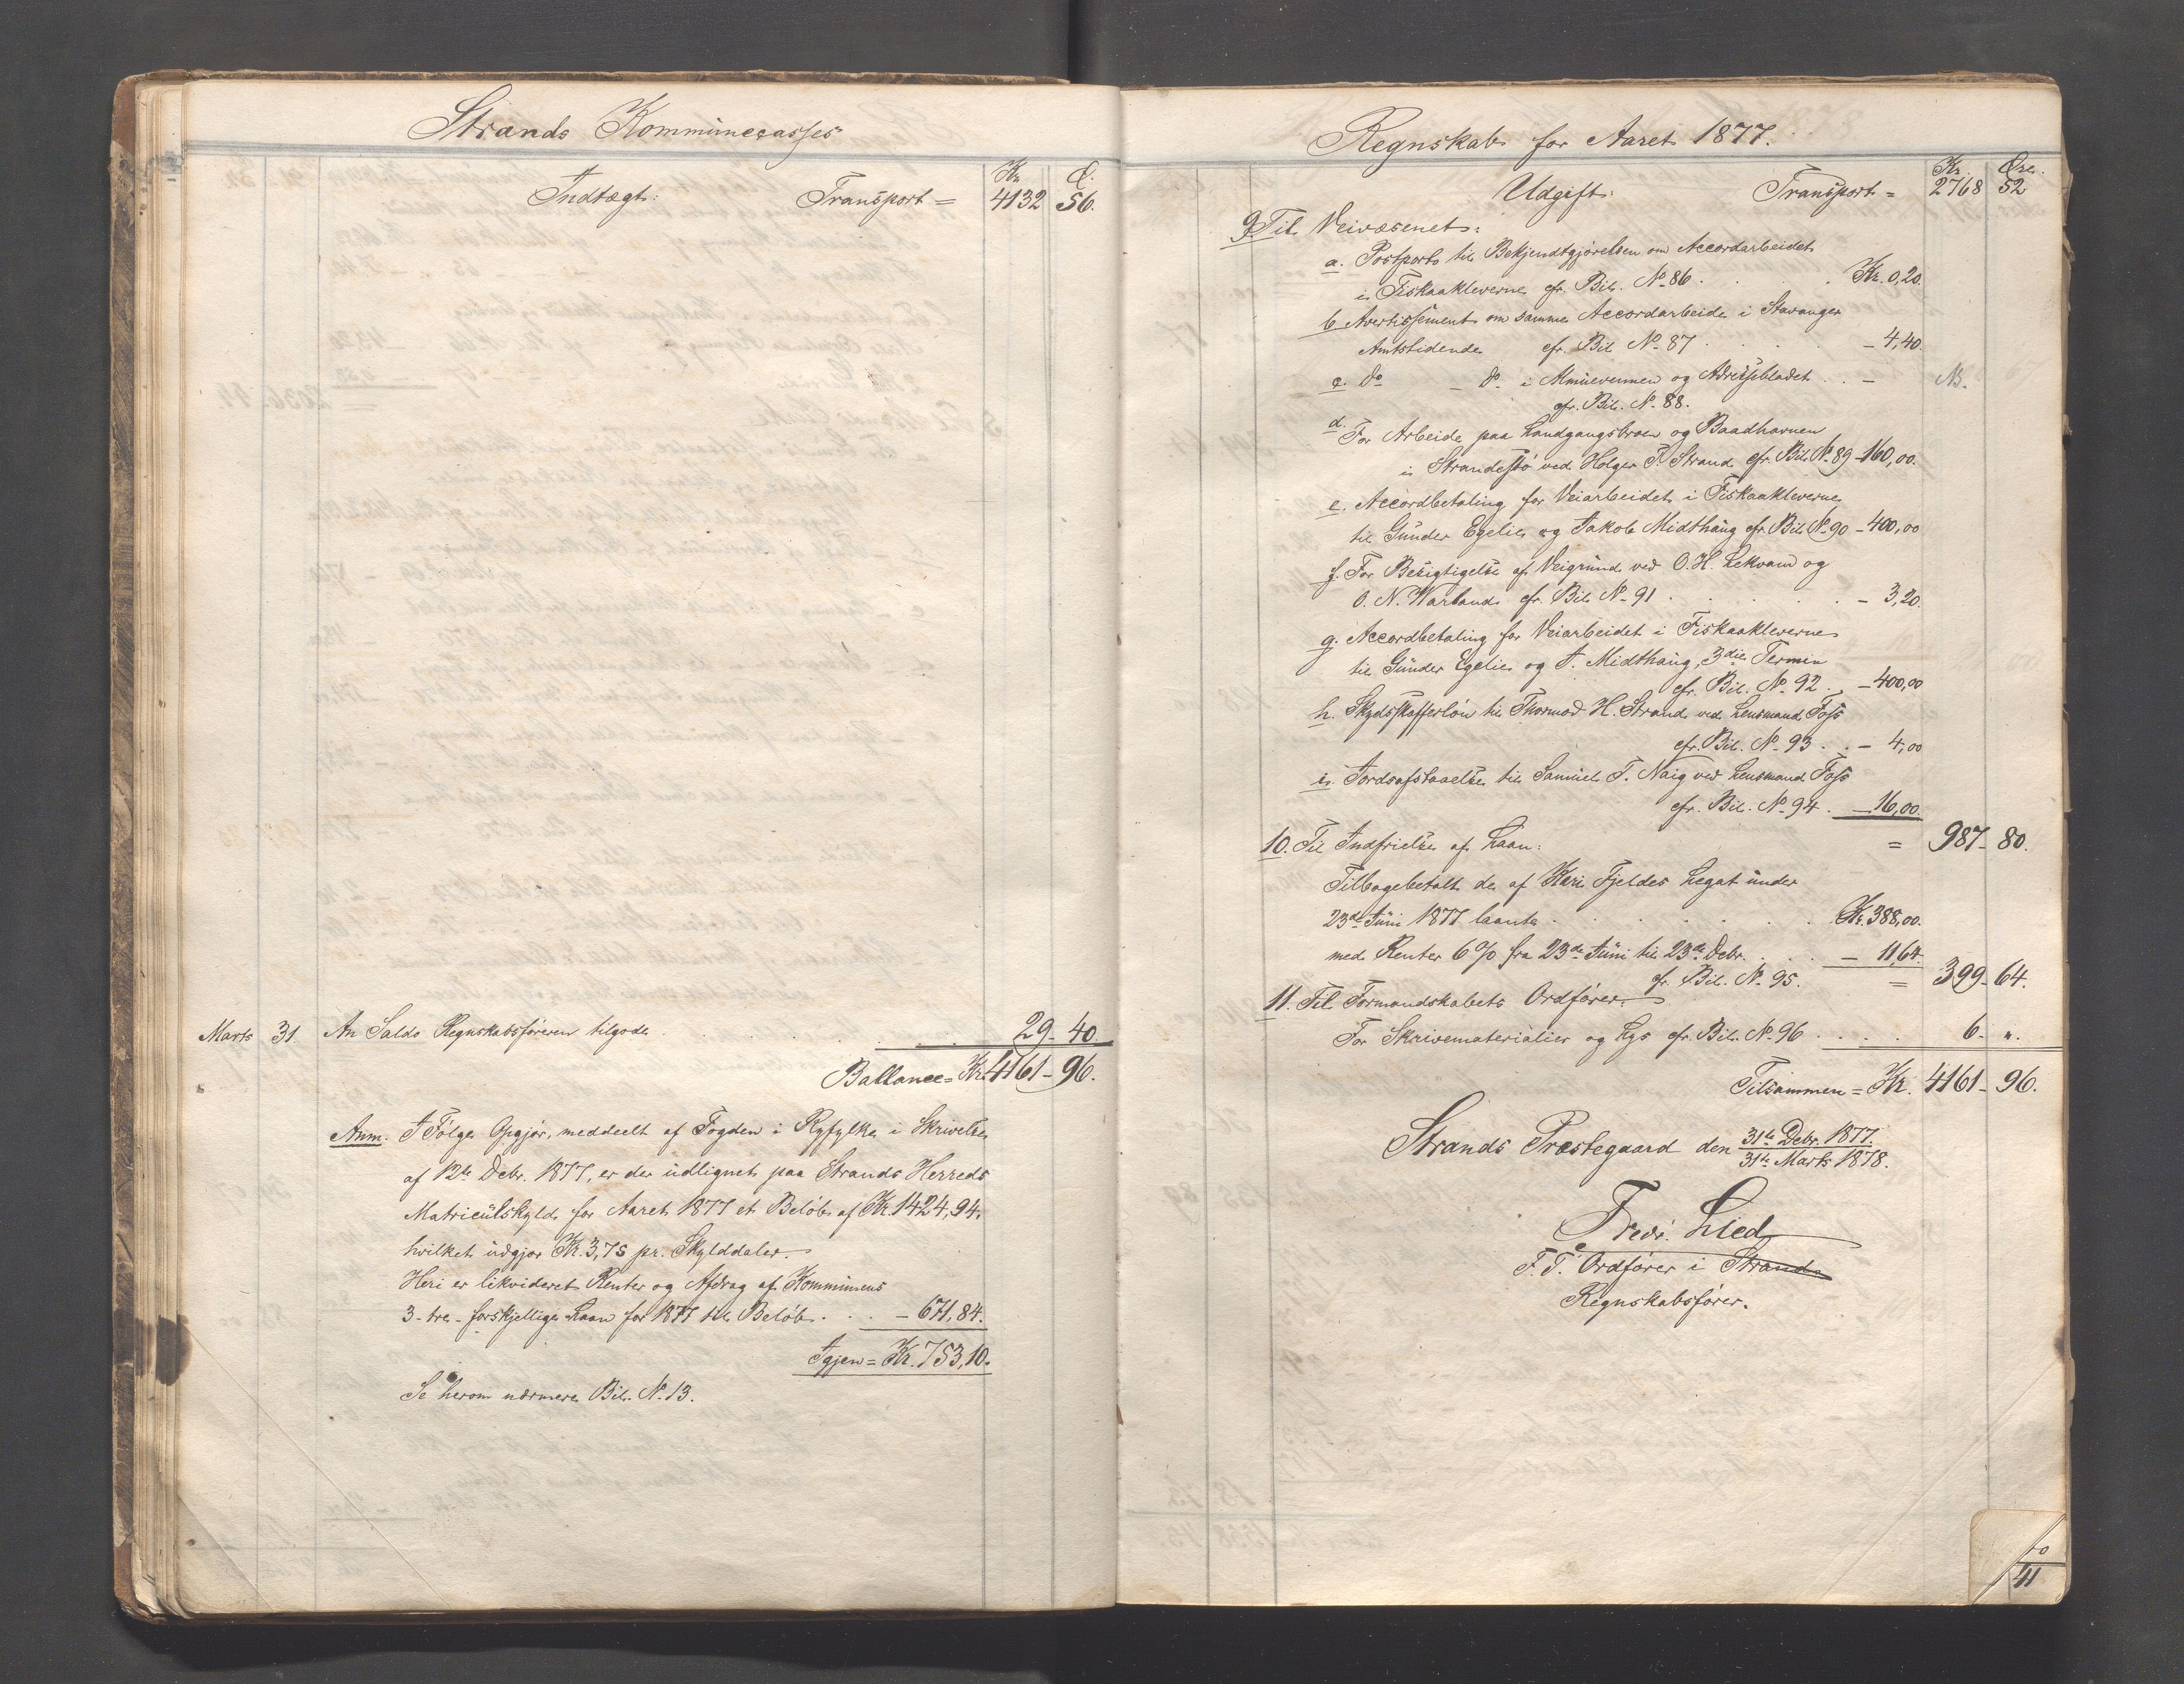 Strands Kommunecasses
Kr. Ø.
Indtægt: Transport = 4132 56.
Marts 31. An Saldo Regnskabsføreren tilgode . . . . . 29 - 40.
Ballance = Kr. 4161 - 96.
Anm. I Følge Opgjør, meddeelt af Fogden i Ryfylke i Skrivelse
af 12te Debr. 1877, er der udlignet paa Strands Herreds
Matriculskyld for Aaret 1877 et Beløb af Kr. 1424,94.
hvilket udgjør Kr. 3,75 pr. Skylddaler.
Heri er likvideret Renter og Afdrag af Kommunens
3 - tre - forskjellige Laan for 1877 til Beløb . . . - 671,84.
Igjen = Kr. 753,10.
Se herom nærmere Bil. No. 13.
Regnskab for Aaret 1877.
Kr. Øre.
Udgift: Transport = 2768 52
9. Til Veivæsenet:
a. Postporto til Bekjendtgjørelsen om Accordarbeidet
i Fiskaakleverne cfr. Bil. No. 86 . . . . Kr. 0,20.
b. Avertissement om samme Accordarbeide i Stavanger
Amtstidende cfr. Bil No. 87 . . . . - 4,40.
c. do - do i Almuevennen og Adressebladet . . - NB.
cfr. Bil. No. 88.
d. For Arbeide paa Landgangsbroen og Baadhavnen
i Strandestø ved Holger T. Strand cfr. Bil. No. 89 - 160,00.
e. Accordbetaling for Veiarbeidet i Fiskaakleverne
til Gunder Egelie og Jakob Midthaug cfr. Bil. No. 90 - 400,00
f. For Besigtigelse af Veigrund ved O. H. Lekvam og
O. N. Warland cfr. Bil. No. 91 . . . . . - 3,20.
g. Accordbetaling for Veiarbeidet i Fiskaakleverne
til Gunder Egelie og J. Midthaug, 3die Termin
cfr. Bil. No. 92 . - 400,00
h. Skydsskafferløn til Thormod H. Strand ved Lensmand Foss
cfr. Bil. No. 93 . . - 4,00
i. Jordsafstaaelse til Samuel T. Naig ved Lensmand Foss
cfr. Bil. No. 94 . - 16,00.
= 987 - 80.
10. Til Indfrielse af Laan:
Tilbagebetalt de af Kari Fjeldes Legat under
23de Juni 1877 laante . . . . . . Kr. 388,00.
med Renter 6 % fra 23de Juni til 23de Debr. . . . - 11,64.
cfr. Bil. No. 95. = 399 - 64.
11. Til Formandskabets Ordfører
For Skrivematerialier og Lys cfr. Bil. No. 96 . . . . 6 - ".
Tilsammen = Kr. 4161 - 96.
Strands Præstegaard den 31te Debr. 1877.
31te Marts 1878.
Fredr. Lied
F. T. Ordfører i Strand
Regnskabsfører.
41